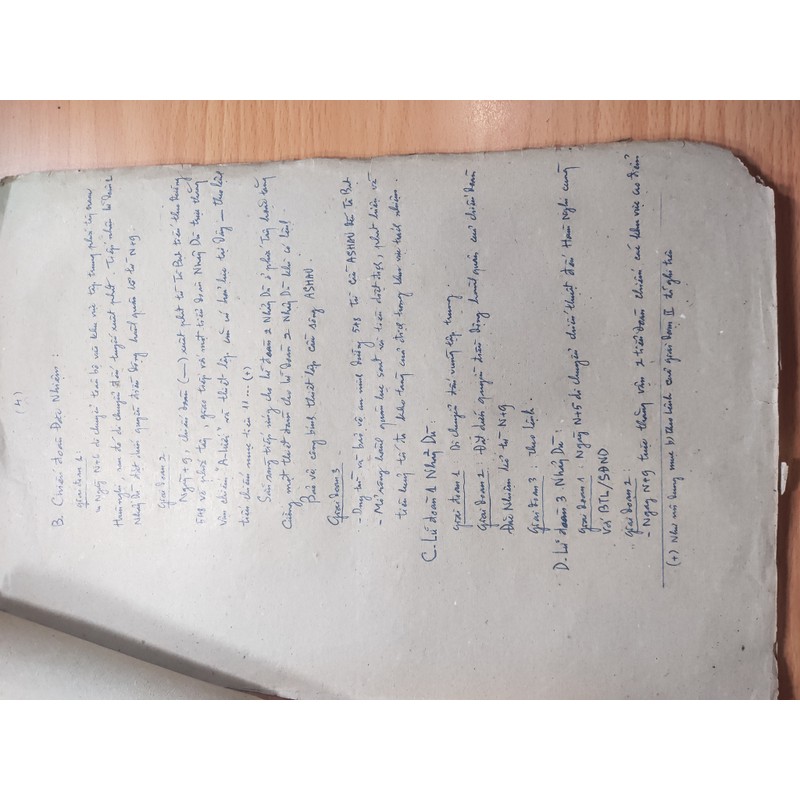 (4)
B. Chiến đoàn Đặc Nhiệm :
giai đoạn 1 :
Ngày N+6 di chuyển toàn bộ vào khu vực tập trung phía tây nam
Hàm Nghi, sau đó di chuyển đến tuyến xuất phát. Tiếp nhận lữ đoàn 1
Nhảy Dù đặt dưới quyền điều động hành quân kể từ N+9.
Giai đoạn 2 .
Ngày +9, chiến đoàn (—) xuất phát từ Tà Bạt tiến theo đường
548 về phía tây, giao tiếp với một tiểu đoàn Nhảy Dù trực thăng
vận chiếm "A-lưới" và thiết lập căn cứ hoả lực tại đây — theo lệnh
tiến chiếm mục tiêu 11 ... (+)
Sẵn sàng tiếp ứng cho lữ đoàn 2 Nhảy Dù ở phía Tây hoặc tăng
cường một thiết đoàn cho lữ đoàn 2 Nhảy Dù khi có lệnh.
Bảo vệ công binh thiết lập cầu sông ASHAU .
Giai đoạn 3 .
- Duy trì và bảo vệ an ninh đường 548 từ cầu ASHAU đến Tà Bạt
- Mở rộng hành quân lục soát và tiêu diệt địch, phát hiện và
tiêu huỷ tối đa kho tàng của địch trong khu vực trách nhiệm .
C. Lữ đoàn 1 Nhảy Dù :
giai đoạn 1 : Di chuyển đến vùng tập trung .
Giai đoạn 2 : Đặt dưới quyền điều động hành quân của chiến đoàn
Đặc Nhiệm kể từ N+9
Giai đoạn 3 : theo lệnh .
D. Lữ đoàn 3 Nhảy Dù :
giai đoạn 1 : Ngày N+5 di chuyển chiến thuật đến Hàm Nghi cùng
với BTL/SĐND
giai đoạn 2 :
- Ngày N+9 trực thăng vận 2 tiểu đoàn chiếm các khu vực cao điểm
(+) Như nội dung mục b) theo lệnh của giai đoạn II đã ghi trên